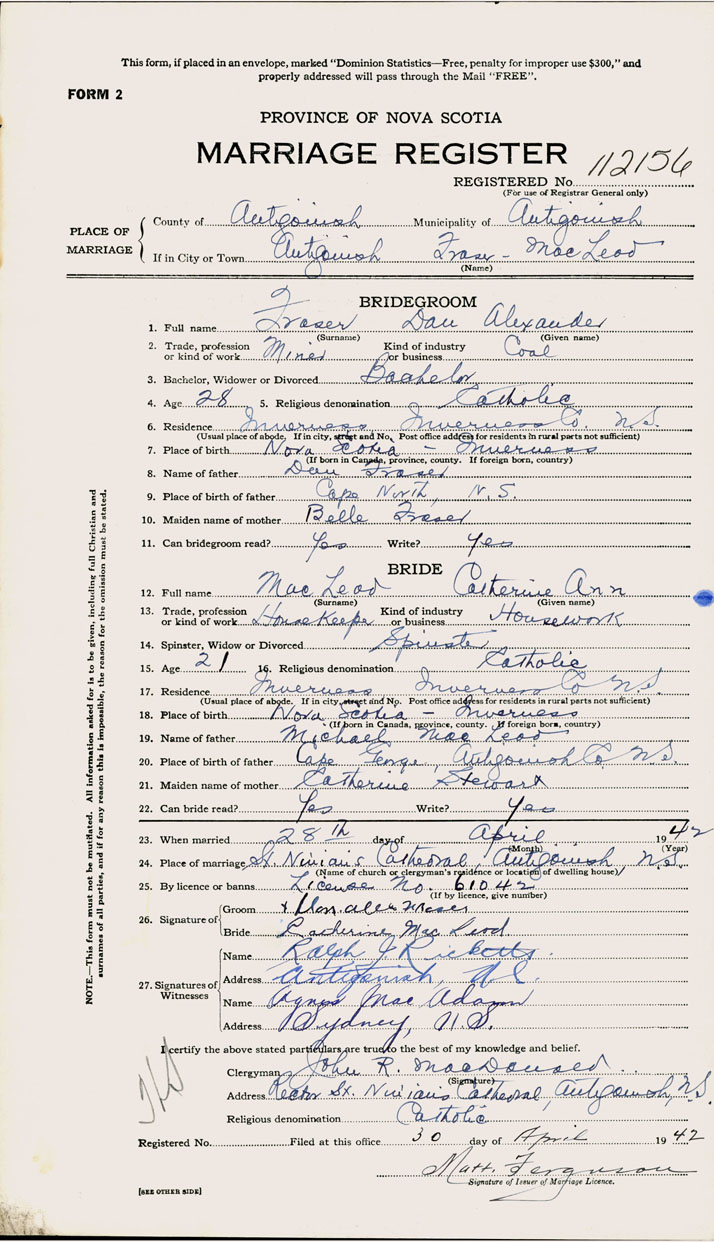 This form, if placed in an envelope, marked "Dominion Statistics—Free, penalty for improper use $300," and
properly addressed will pass through the Mail "FREE".
FORM 2
PROVINCE OF NOVA SCOTIA
MARRIAGE REGISTER
112156
REGISTERED No.
(For use of Registrar General only)
PLACE OF MARRIAGE
County of Antigonish Municipality of Antigonish
If in City or Town Antigonish Fraser - MacLeod
(Name)
BRIDEGROOM
1. Full name Fraser Dan Alexander
(Surname) (Given name)
2. Trade, profession or kind of work Miner Kind of industry or business Coal
3. Bachelor, Widower or Divorced Bachelor
4. Age 28 5. Religious denomination Catholic
6. Residence Inverness Inverness Co N.S.
(Usual place of abode. If in city, street and No. Post office address for residents in rural parts not sufficient)
7. Place of birth Nova Scotia - Inverness
(If born in Canada, province, county. If foreign born, country)
8. Name of father Dan Fraser
9. Place of birth of father Cape North, N.S.
10. Maiden name of mother Belle Fraser
11. Can bridegroom read? Yes Write? Yes
BRIDE
12. Full name MacLeod Catherine Ann
(Surname) (Given name)
13. Trade, profession or kind of work HouseKeeper Kind of industry or business Housework
14. Spinster, Widow or Divorced Spinster
15. Age 21 16. Religious denomination Catholic
17. Residence Inverness Inverness Co N.S.
(Usual place of abode. If in city, street and No. Post office address for residents in rural parts not sufficient)
18. Place of birth Nova Scotia - Inverness
(If born in Canada, province, county. If foreign born, country)
19. Name of father Michael MacLeod
20. Place of birth of father Cape George, Antigonish Co N.S.
21. Maiden name of mother Catherine Stewart
22. Can bride read? Yes Write? Yes
23. When married 28th day of April 1942
(Month) (Year)
24. Place of marriage St. Ninian's Cathedral, Antigonish N.S.
(Name of church or clergyman's residence or location of dwelling house)
25. By licence or banns License No. 61042
(If by licence, give number)
26. Signature of
Groom x Dan alex Fraser
Bride Catherine MacLeod
27. Signatures of Witnesses
Name Ralph J Ricketts
Address Antigonish, N.S.
Name Agnes MacAdam
Address Sydney, N.S.
I certify the above stated particulars are true to the best of my knowledge and belief.
Clergyman John R. MacDonald
(Signature)
Address Rector St. Ninian's Cathedral, Antigonish, N.S.
Religious denomination Catholic
Registered No. Filed at this office 30 day of April 1942
Matt. Ferguson
Signature of Issuer of Marriage Licence.
[SEE OTHER SIDE]
NOTE.—This form must not be mutilated. All information asked for is to be given, including full Christian and
surnames of all parties, and if for any reason this is impossible, the reason for the omission must be stated.